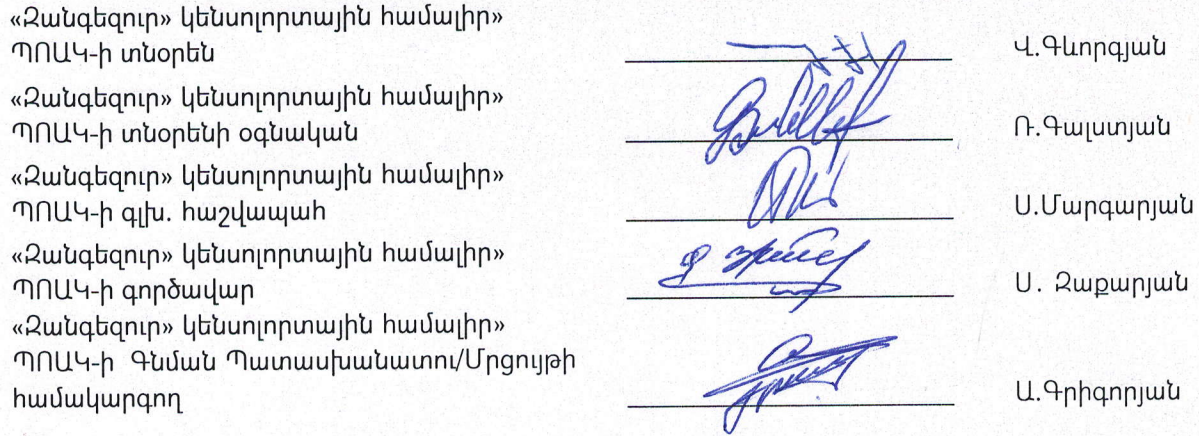 «Զանգեզուր» կենսոլորտային համալիր»
ՊՈԱԿ-ի տնօրեն Վ.Գևորգյան
«Զանգեզուր» կենսոլորտային համալիր»
ՊՈԱԿ-ի տնօրենի օգնական Ռ.Գալստյան
«Զանգեզուր» կենսոլորտային համալիր»
ՊՈԱԿ-ի գլխ. հաշվապահ Ս.Մարգարյան
«Զանգեզուր» կենսոլորտային համալիր»
ՊՈԱԿ-ի գործավար Ս. Զաքարյան
«Զանգեզուր» կենսոլորտային համալիր»
ՊՈԱԿ-ի Գնման Պատասխանատու/Մրցույթի
համակարգող Ա.Գրիգորյան